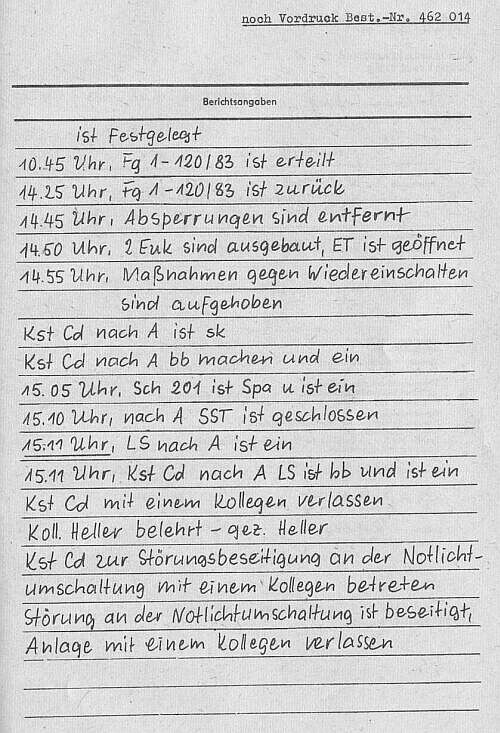 noch Vordruck Best.-Nr. 462 014
Berichtsangaben
ist Festgelegt
10.45 Uhr, Fg 1-120/83 ist erteilt
14.25 Uhr, Fg 1-120/83 ist zurück
14.45 Uhr, Absperrungen sind entfernt
14.50 Uhr, 2 Euk sind ausgebaut, ET ist geöffnet
14.55 Uhr, Maßnahmen gegen Wiedereinschalten
sind aufgehoben
Kst Cd nach A ist sk
Kst Cd nach A bb machen und ein
15.05 Uhr, Sch 201 ist Spa u ist ein
15.10 Uhr, nach A SST ist geschlossen
15.11 Uhr, LS nach A ist ein
15.11 Uhr, Kst Cd nach A LS ist bb und ist ein
Kst Cd mit einem Kollegen verlassen
Koll. Heller belehrt - gez. Heller
Kst Cd zur Störungsbeseitigung an der Notlicht-
umschaltung mit einem Kollegen betreten
Störung an der Notlichtumschaltung ist beseitigt,
Anlage mit einem Kollegen verlassen